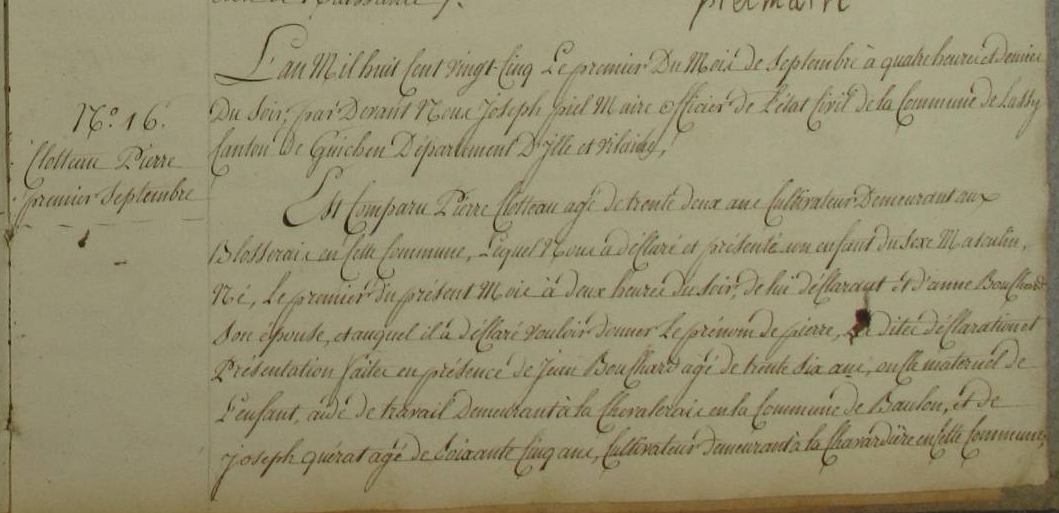 piel maire
L'an Mil huit Cent vingt-Cinq Le premier Du Mois de Septembre à quatre heures et demie
Du Soir, par Devant Nous Joseph piel Maire officier de L'état Civil de la Commune de Lassy
Canton de Guichen Département D'jlle et vilaine,
N.° 16.
Clotteau Pierre
premier Septembre
Est Comparu Pierre Clotteau agé de trente deux ans Cultivateur Demeurant aux
Blosserais en Cette Commune, Lequel Nous a déClaré et présenté un enfant du Sexe Masculin,
Né, Le premier du présent Mois à deux heures du Soir, de lui déClarant et d'anne Bouchard
Son épouse, et auquel il a déClaré vouloir donner Le prénom de pierre, Les dites déClaration et
Présentation faites en présence de Jean Bouchard agé de trente Six ans, oncle maternel de
L'enfant, aide de travail Demeurant à la Chevalerais en la Commune de Baulon, et de
Joseph quérat agé de Soixante Cinq ans, Cultivateur demeurant à la Chavardière en Cette Commune,